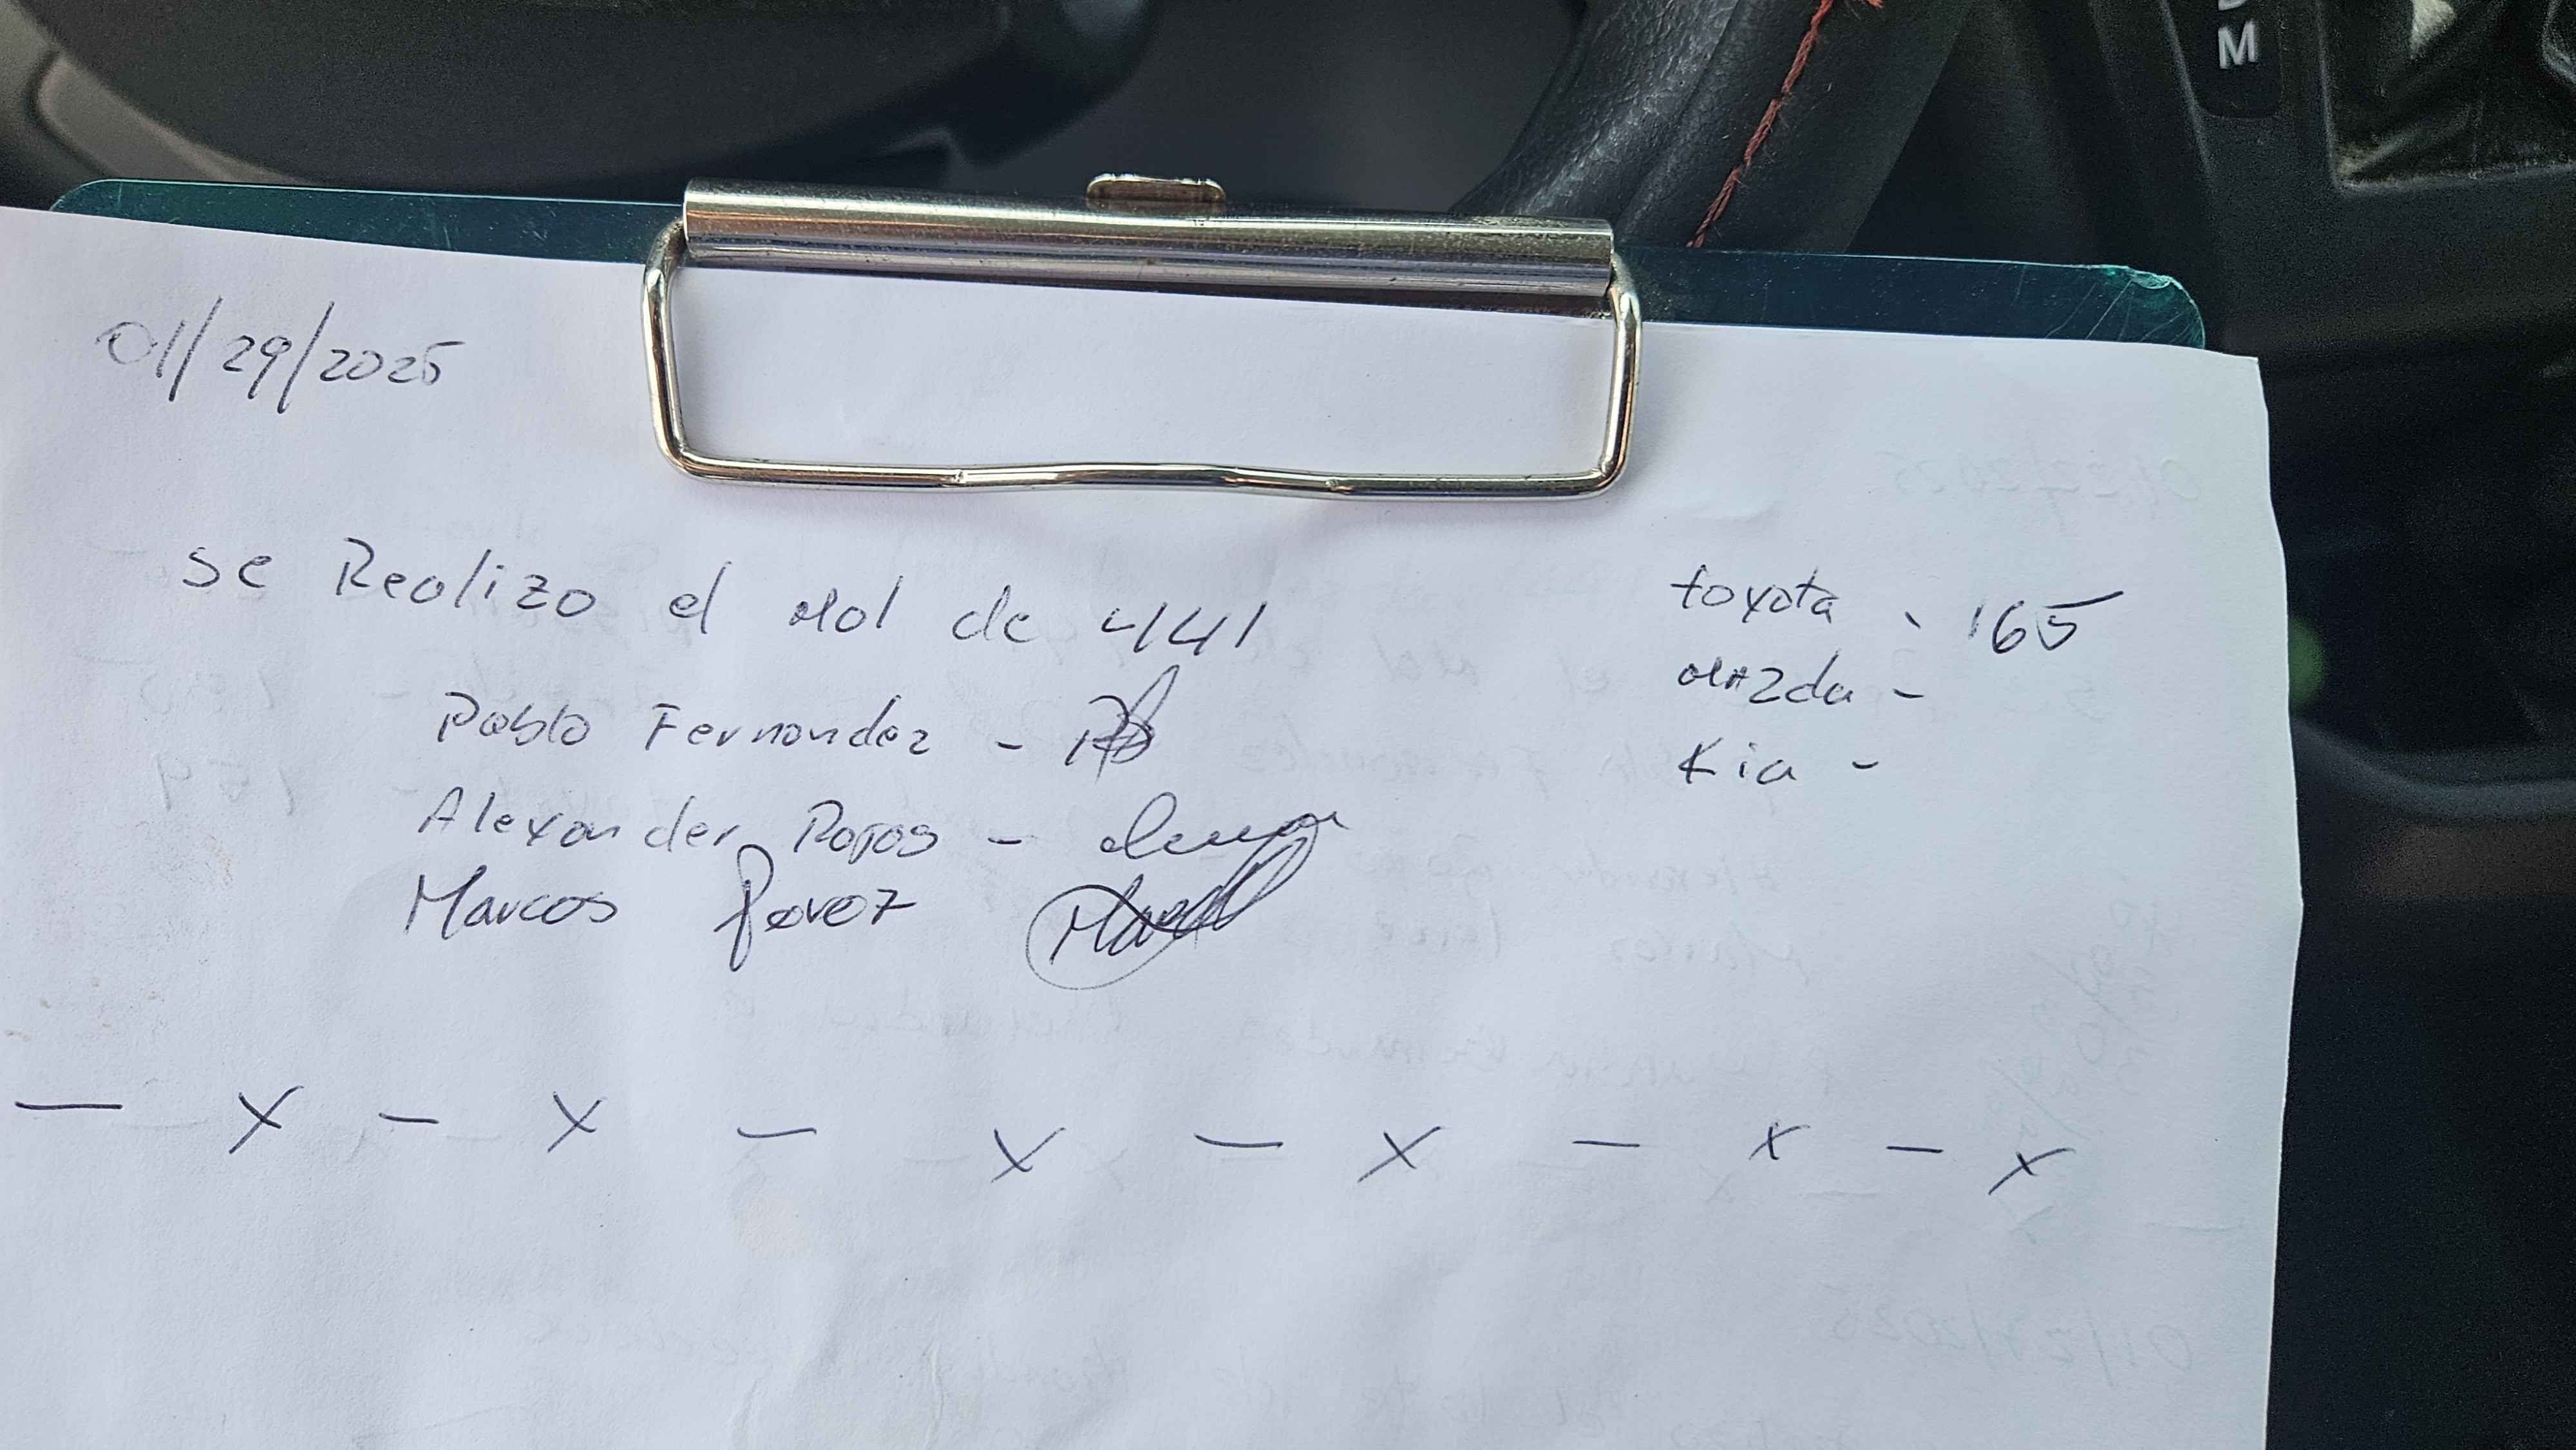 M
01/29/2025
se Realizo el Mol de 441
Pablo Fernandez -
Alexander Rojas -
Marcos Perez
toyota - 165
Mazda -
Kia -
— x — x — x — x — x — x